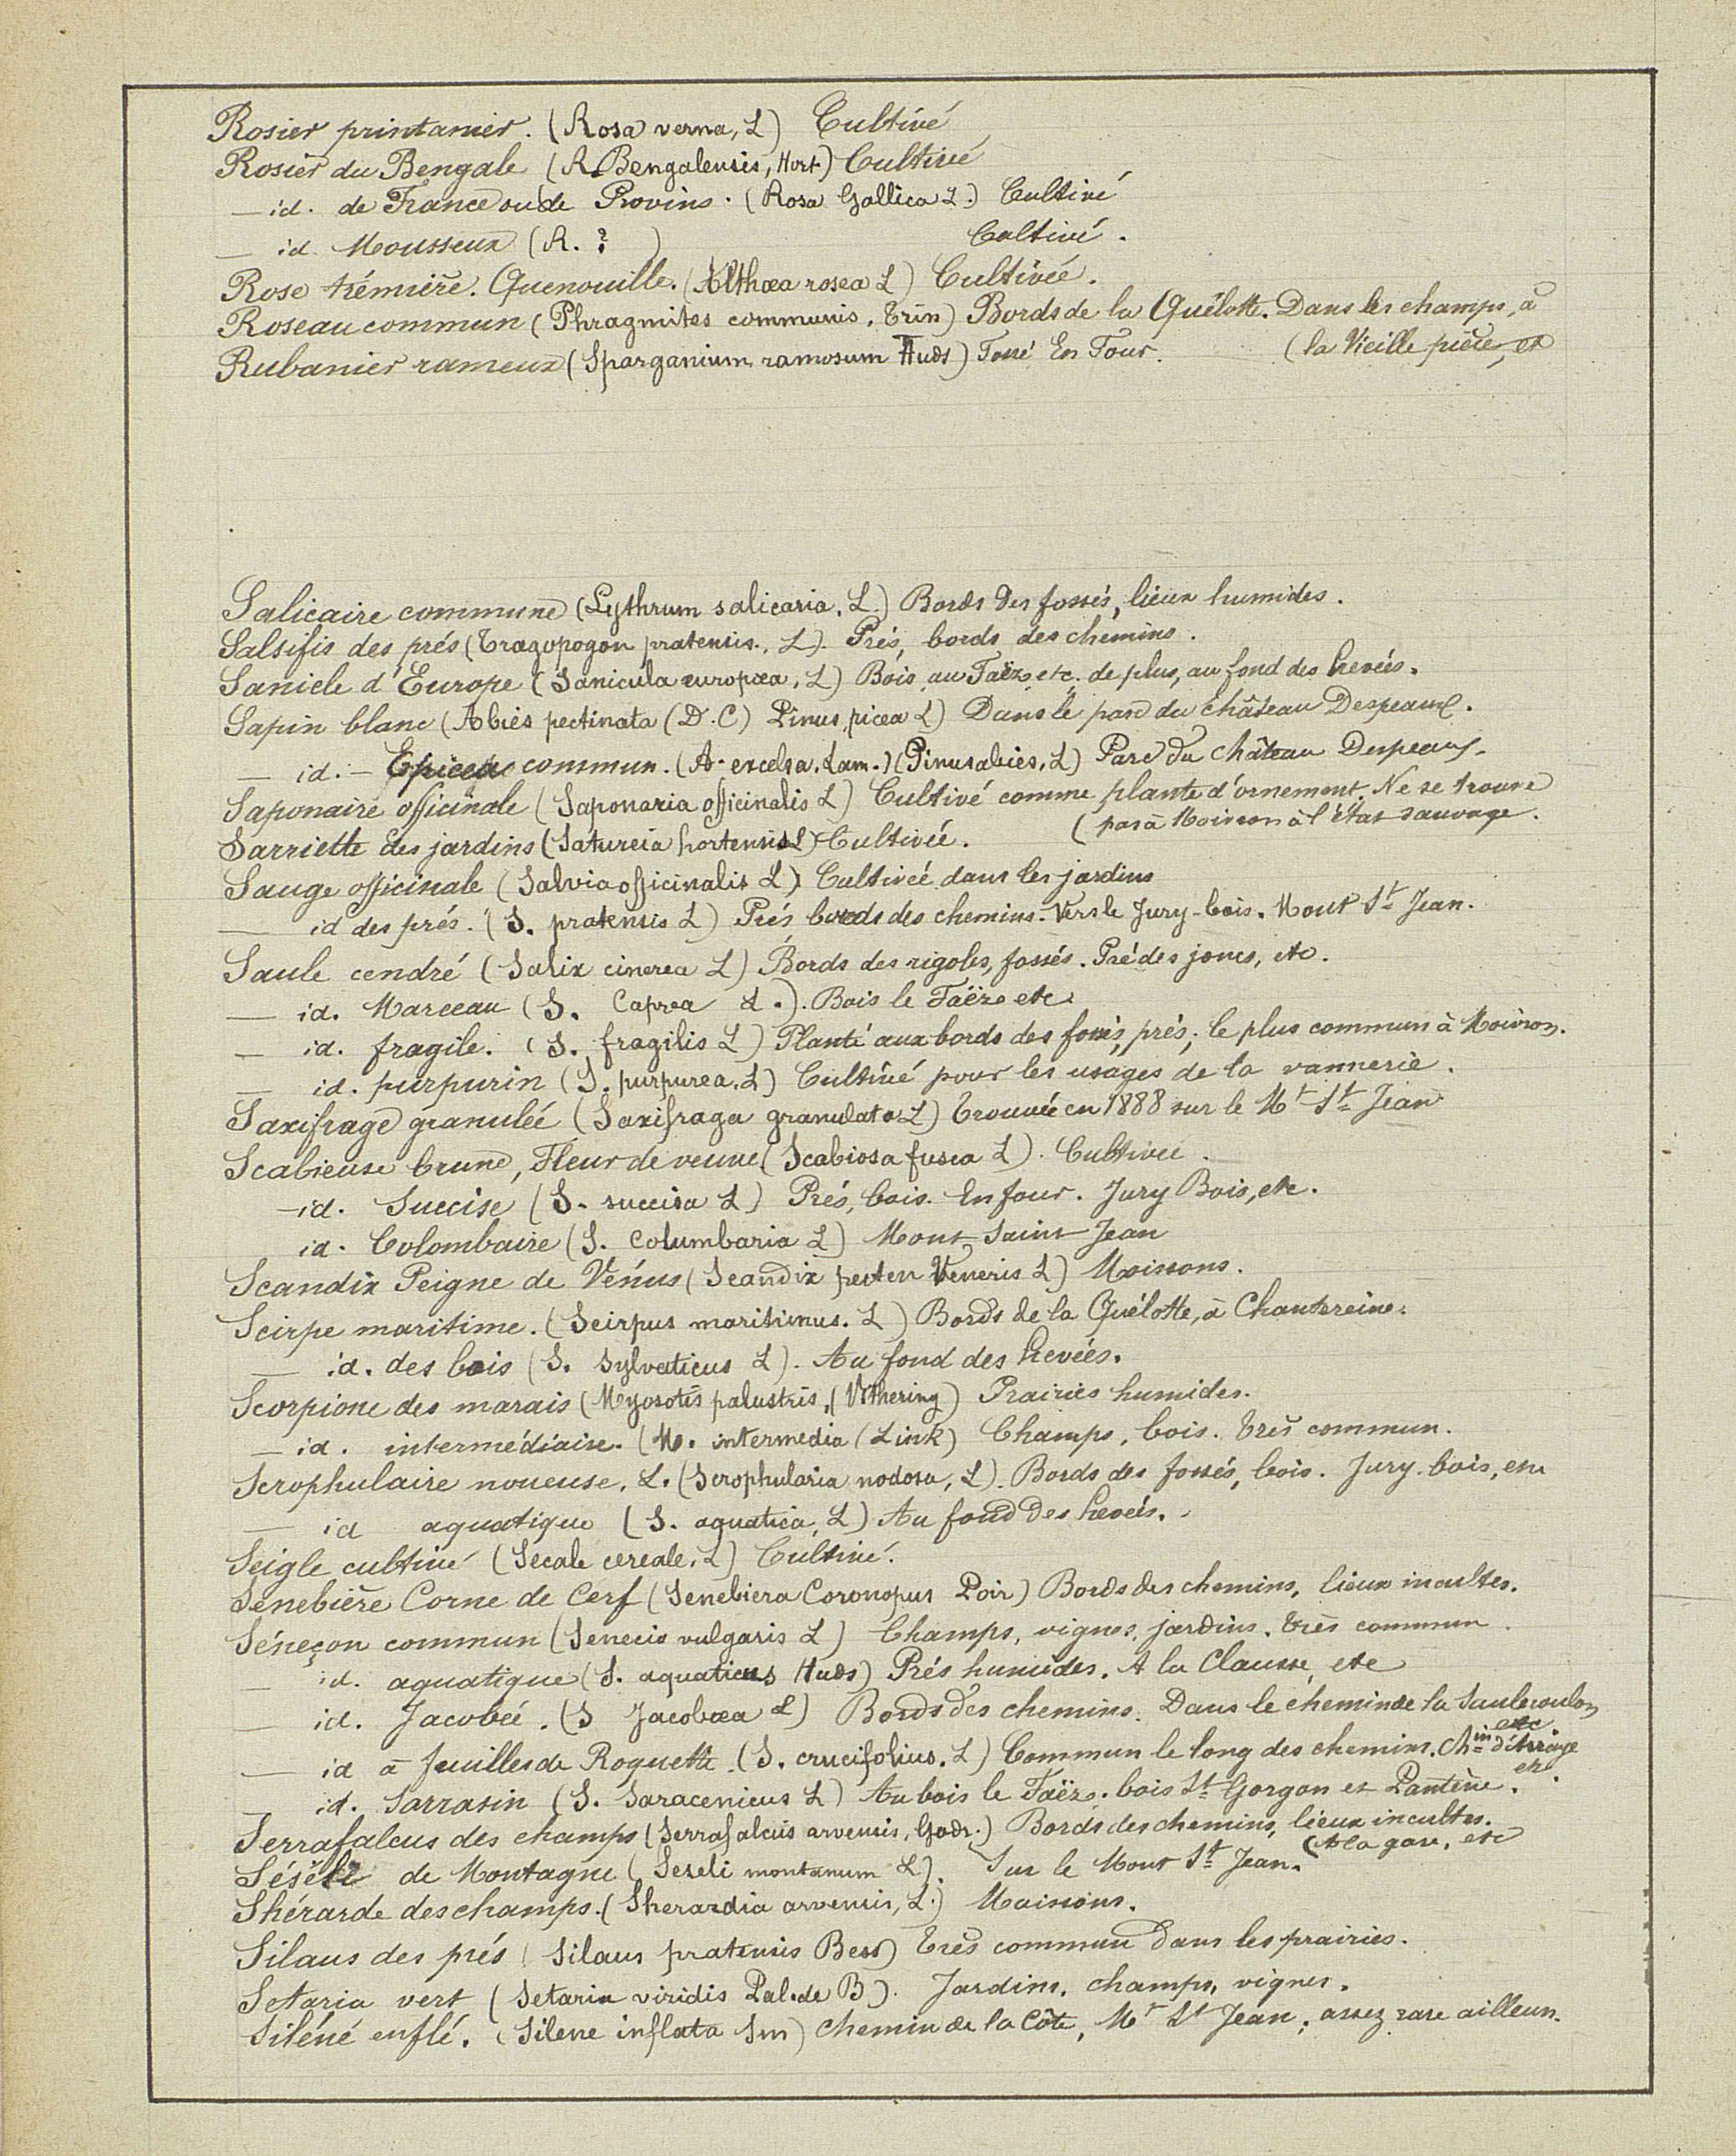 Rosier printanier. (Rosa verna, L) Cultivé
Rosier du Bengale (R. Bengalensis, Hort) Cultivé
— id. de France ou de Provins. (Rosa Gallica L.) Cultivé
— id. Mousseux (R. ? ) Cultivé.
Rose trémière. Quenouille. (Althæa rosea L) Cultivée.
Roseau commun (Phragmites communis, Trin) Bords de la Quélotte. Dans les champs, à
Rubanier rameux (Sparganium ramosum Huds) Fossé En Four. (la Vieille pièce, etc
Salicaire commune (Lythrum salicaria, L.) Bords des fossés, lieux humides.
Salsifis des prés (Tragopogon pratensis, L). Prés, bords des chemins.
Sanicle d'Europe (Sanicula europæa, L) Bois, au Faëzo etc. de plus, au fond des hevées.
Sapin blanc (Abies pectinata (D.C) Pinus picea L) Dans le parc du château Despeaux.
— id. — Epicea commun. (A. excelsa, Lam.) (Pinus abiès, L) Parc du château Despeaux.
Saponaire officinale (Saponaria officinalis L) Cultivé comme plante d'ornement. Ne se trouve
(pas à Moivron à l'état sauvage.
Sarriette des jardins (Satureia hortensis L) Cultivée.
Sauge officinale (Salvia officinalis L) Cultivée dans les jardins
— id des prés. (S. pratensis L) Prés bords des chemins. Vers le Jury-bois. Mont St Jean.
Saule cendré (Salix cinerea L) Bords des rigoles, fossés. Pré des joncs, etc.
— id. Marceau (S. Caprea L.). Bois le Faëzo etc.
— id. fragile. (S. fragilis L) Planté aux bords des fossés, prés; le plus commun à Moivron.
— id. purpurin (S. purpurea, L) Cultivé pour les usages de la vannerie.
Saxifrage granulée (Saxifraga granulata L) Trouvée en 1888 sur le Mt St Jean
Scabieuse brune, Fleur de veuve (Scabiosa fusca L). Cultivée.
— id. Succise (S. succisa L) Prés, bois. En four. Jury Bois, etc.
id. Colombaire (S. Columbaria L) Mont Saint Jean
Scandix Peigne de Vénus (Scandix pecten Veneris L) Moissons.
Scirpe maritime. (Scirpus maritimus. L) Bords de la Quélotte, à Chantereine.
— id. des bois (S. sylvaticus L). Au fond des hevées.
Scorpione des marais (Myosotis palustris, (Vithering) Prairies humides.
— id. intermédiaire. (M. intermedia (Link) Champs, bois. Très commun.
Scrophulaire noueuse, L. (Scrophularia nodosa, L). Bords des fossés, bois. Jury. bois, etc
— id aquatique (S. aquatica, L) Au fond des hevées.
Seigle cultivé (Secale cereale, L) Cultivé.
Senebière Corne de Cerf (Senebiera Coronopus Poir) Bords des chemins, lieux incultes.
Séneçon commun (Senecio vulgaris L) Champs, vignes, jardins. Très commun.
— id. aquatique (S. aquaticus Huds) Prés humides. A la Clausse, etc
— id. Jacobée. (S Jacobæa L) Bords des chemins. Dans le chemin de la Saulecoulon
etc
— id à feuilles de Roquette. (S. crucifolius. L) Commun le long des chemins. Chin d'Arraye
etc.
— id. Sarrasin (S. Saracenicus L) Au bois le Faëzo. bois St Gorgon et Pantène.
Serrafalcus des champs (Serrafalcus arvensis, Godr.) Bords des chemins, lieux incultes.
(A la gare, etc
Séséli de Montagne (Seseli montanum L). Sur le Mont St Jean.
Shérarde des champs. (Sherardia arvensis, L.) Moissons.
Silaus des prés (Silaus pratensis Bess) Très commun dans les prairies.
Setaria vert (Setaria viridis Pal. de B). Jardins, champs, vignes.
Siléné enflé. (Silene inflata Sm) chemin de la Côte, Mt St Jean; assez rare ailleurs.